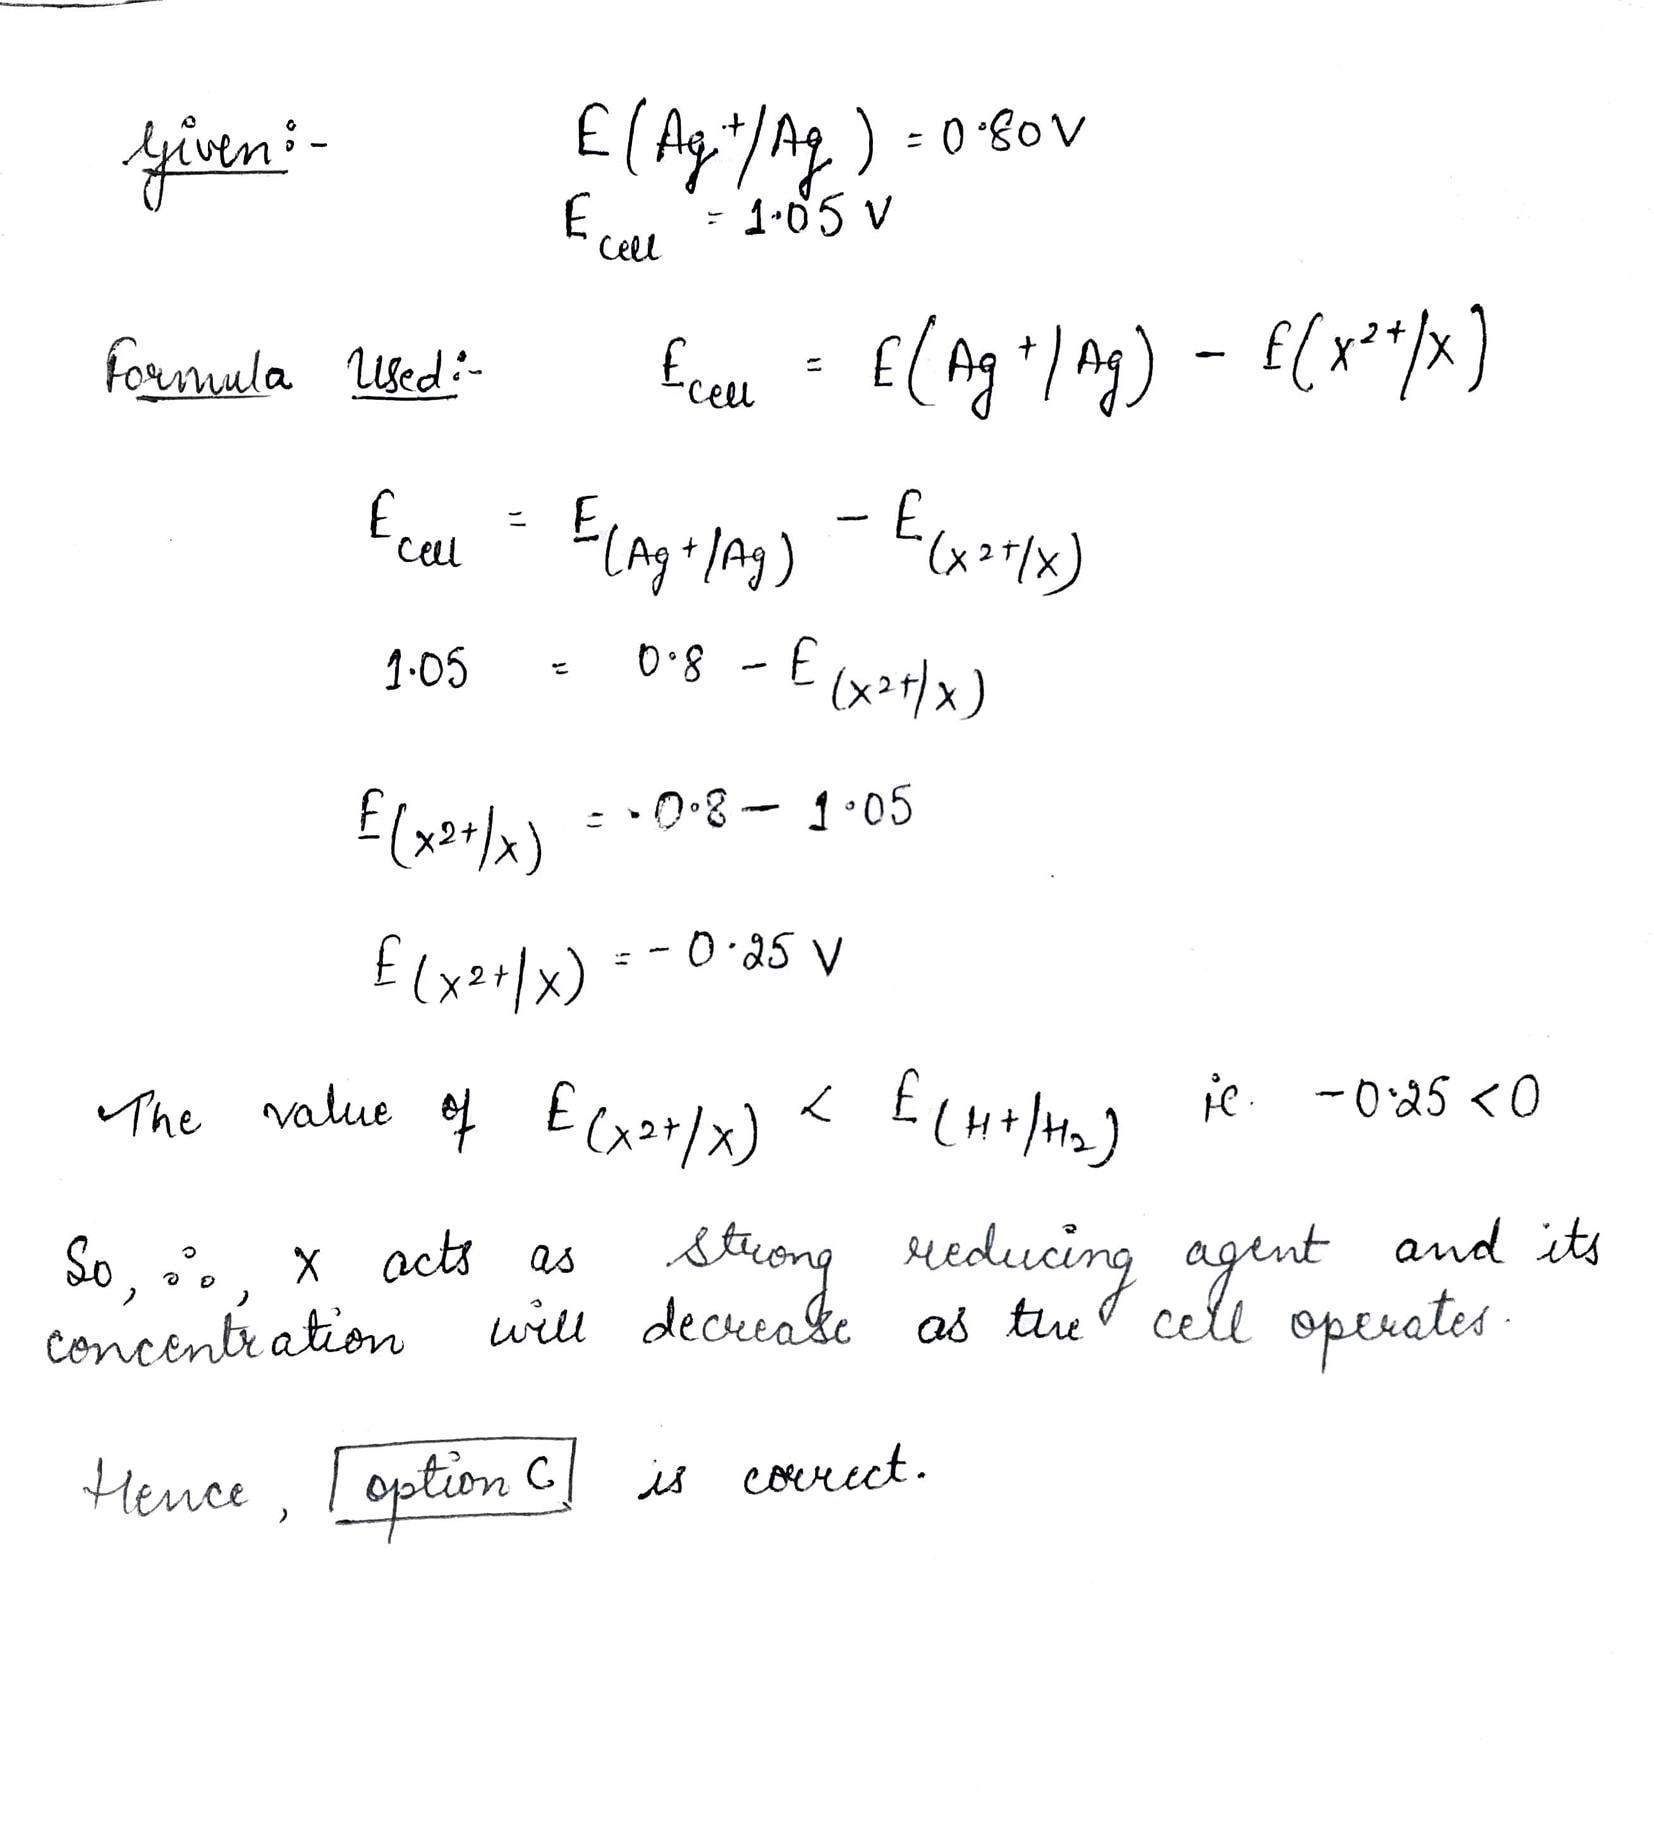 Given:- E(Ag+/Ag) = 0.80V
Ecell = 1.05 V
Formula Used:- Ecell = E(Ag+/Ag) - E(X²⁺/X)
Ecell = E(Ag+/Ag) - E(X2+/X)
1.05 = 0.8 - E(X2+/X)
E(X2+/X) = 0.8 - 1.05
E(X2+/X) = -0.25 V
The value of E(X2+/X) < E(H+/H2) ie. -0.25 < 0
So, ∴, X acts as strong reducing agent and its
concentration will decrease as the cell operates.
Hence, option C is correct.